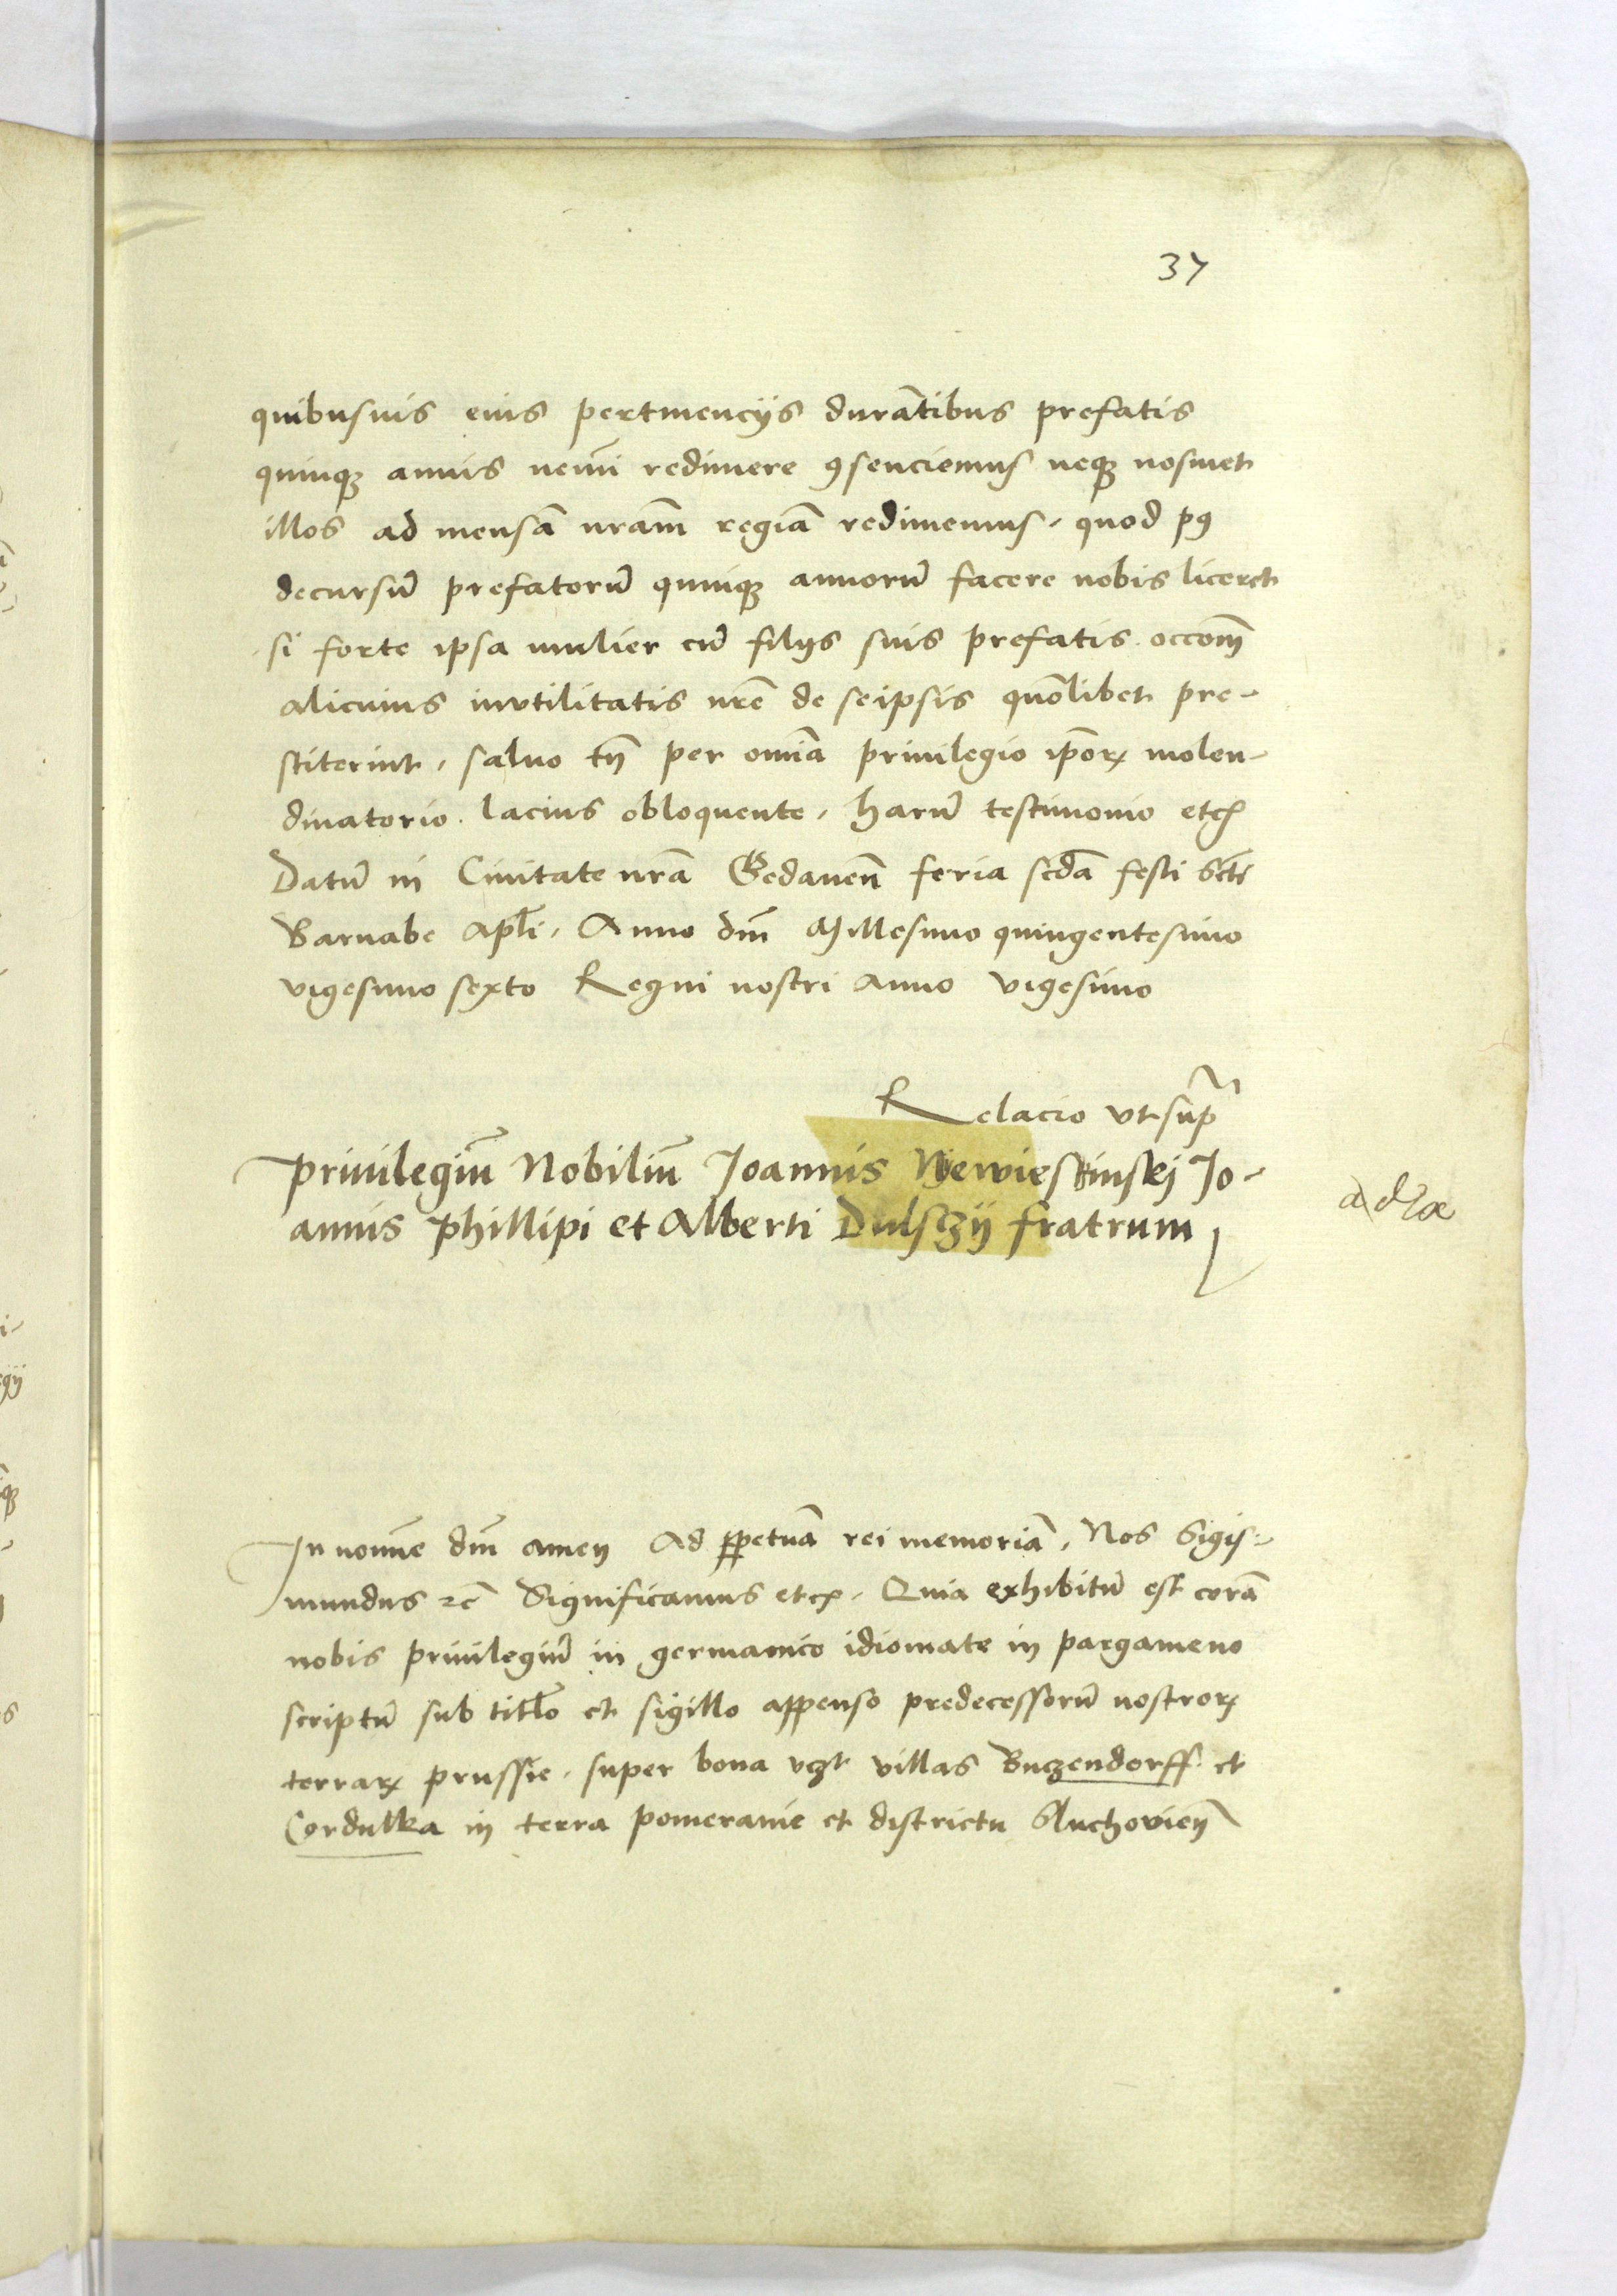 37
quibusuis eius pertinencijs durātibus prefatis
quinqꝫ annis nemī redimere ꝯsenciemus neqꝫ nosmet
illos ad mensā nrām regiā redimemus, quod pꝯ
decursū prefatorū quinqꝫ annorū facere nobis liceret
si forte ipsa mulier cū filijs suis prefatis occōm
alicuius inutilitatis nrē de seipsis quōlibet pre-
stiterint, saluo tn̄ per omīa priuilegio ip̄orꝝ molen-
dinatorio lacius obloquente, harū testimonio etcꝫ
Datū in Ciuitate nrā Gedanen̄ feria scd̄a festi scti
Barnabe apl̄i, Anno dn̄i Millesimo quingentesimo
vigesimo sexto Regni nostri Anno vigesimo
Relacio vt sup̄
Priuilegiū Nobiliū Joannis Nyewiesćinskj Jo-
annis Phillipi et Alberti Dulsczij fratrum
In nomīe dn̄i amen Ad ꝑpetuā rei memoriā, Nos Sigis-
mundus ꝛc̄ Significamus etcꝫ, Quia exhibitū est corā
nobis priuilegiū in germanico idiomate in pargameno
scriptū sub titl̄o et sigillo appenso predecessorū nostrorꝝ
terrarꝝ prussie, super bona vꝫt villas Buczendorff et
Cordulka in terra pomeranie et districtu Sluchovien̄